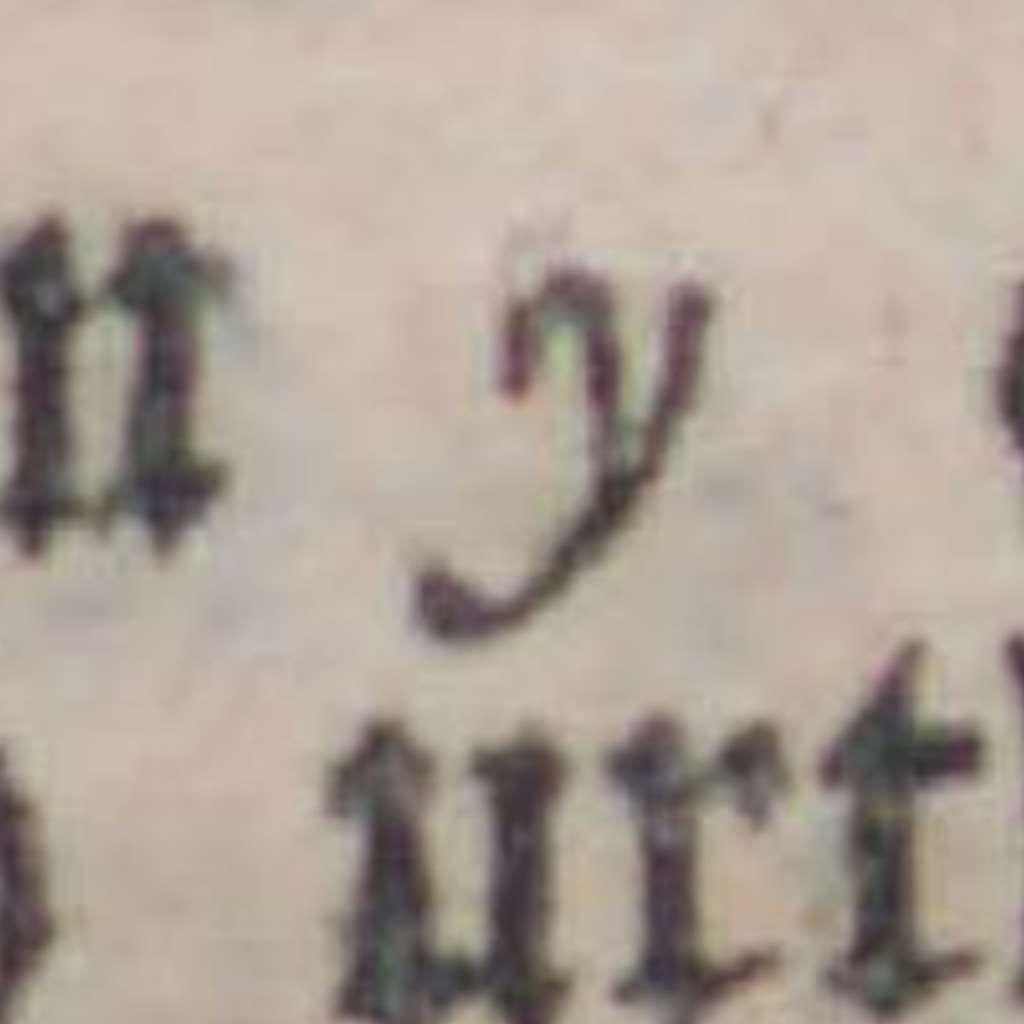 n y
urt